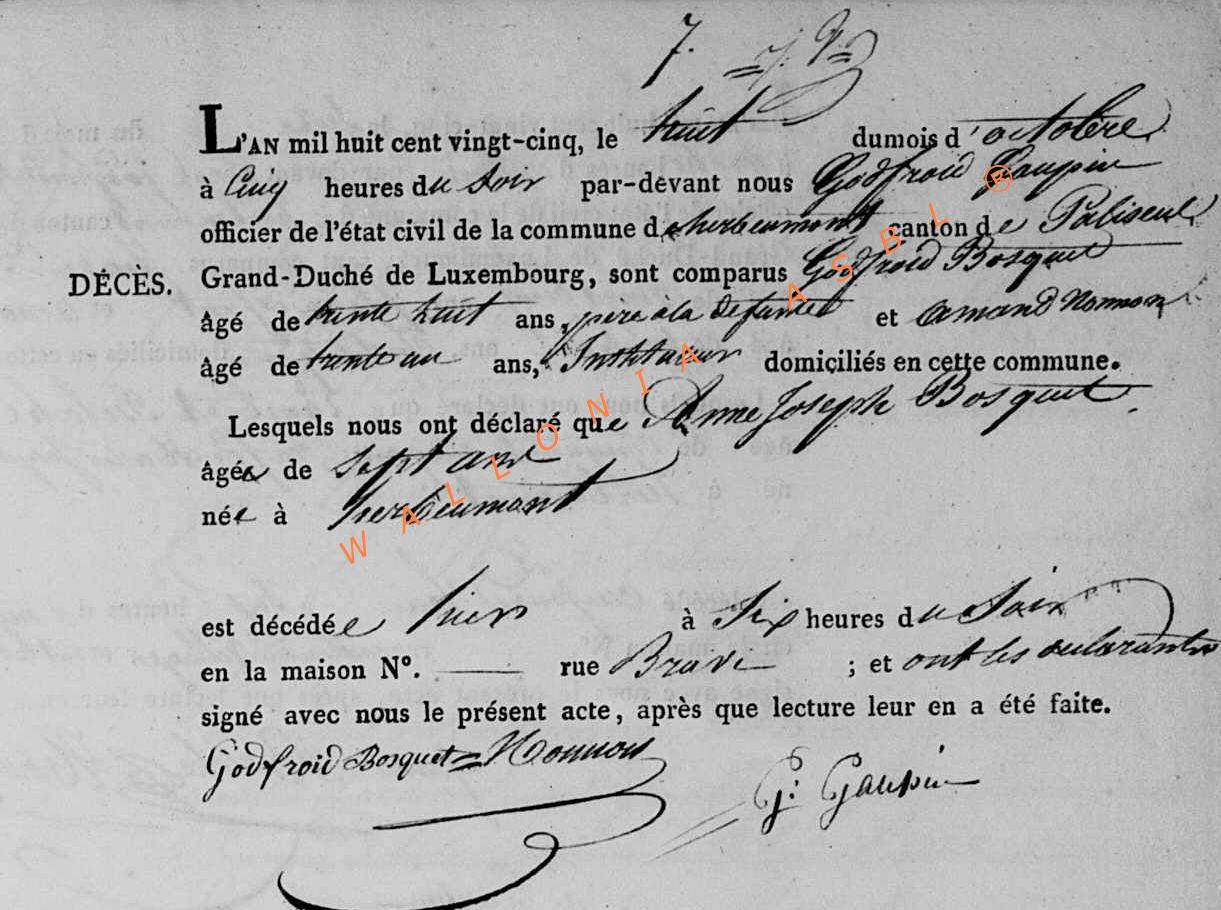 7.
L'AN mil huit cent vingt-cinq, le huit du mois d'octobre
à Cinq heures du Soir par-devant nous Godfroid Gaupin
officier de l'état civil de la commune d'herbeumont canton de Paliseul
DÉCÈS. Grand-Duché de Luxembourg, sont comparus Godfroid Bosquet
âgé de trente huit ans, pere a la defunte et amand Nonnon
âgé de trente un ans, Instituteur domiciliés en cette commune.
Lesquels nous ont déclaré que Anne Joseph Bosquet
âgée de Sept ans
née à herbeumont
est décédée hier à Six heures du Soir
en la maison N°. — rue Bravi ; et ont les declarants
signé avec nous le présent acte, après que lecture leur en a été faite.
Godfroid Bosquet = Nonnon G: Gaupin
WALLONIA ASBL ®